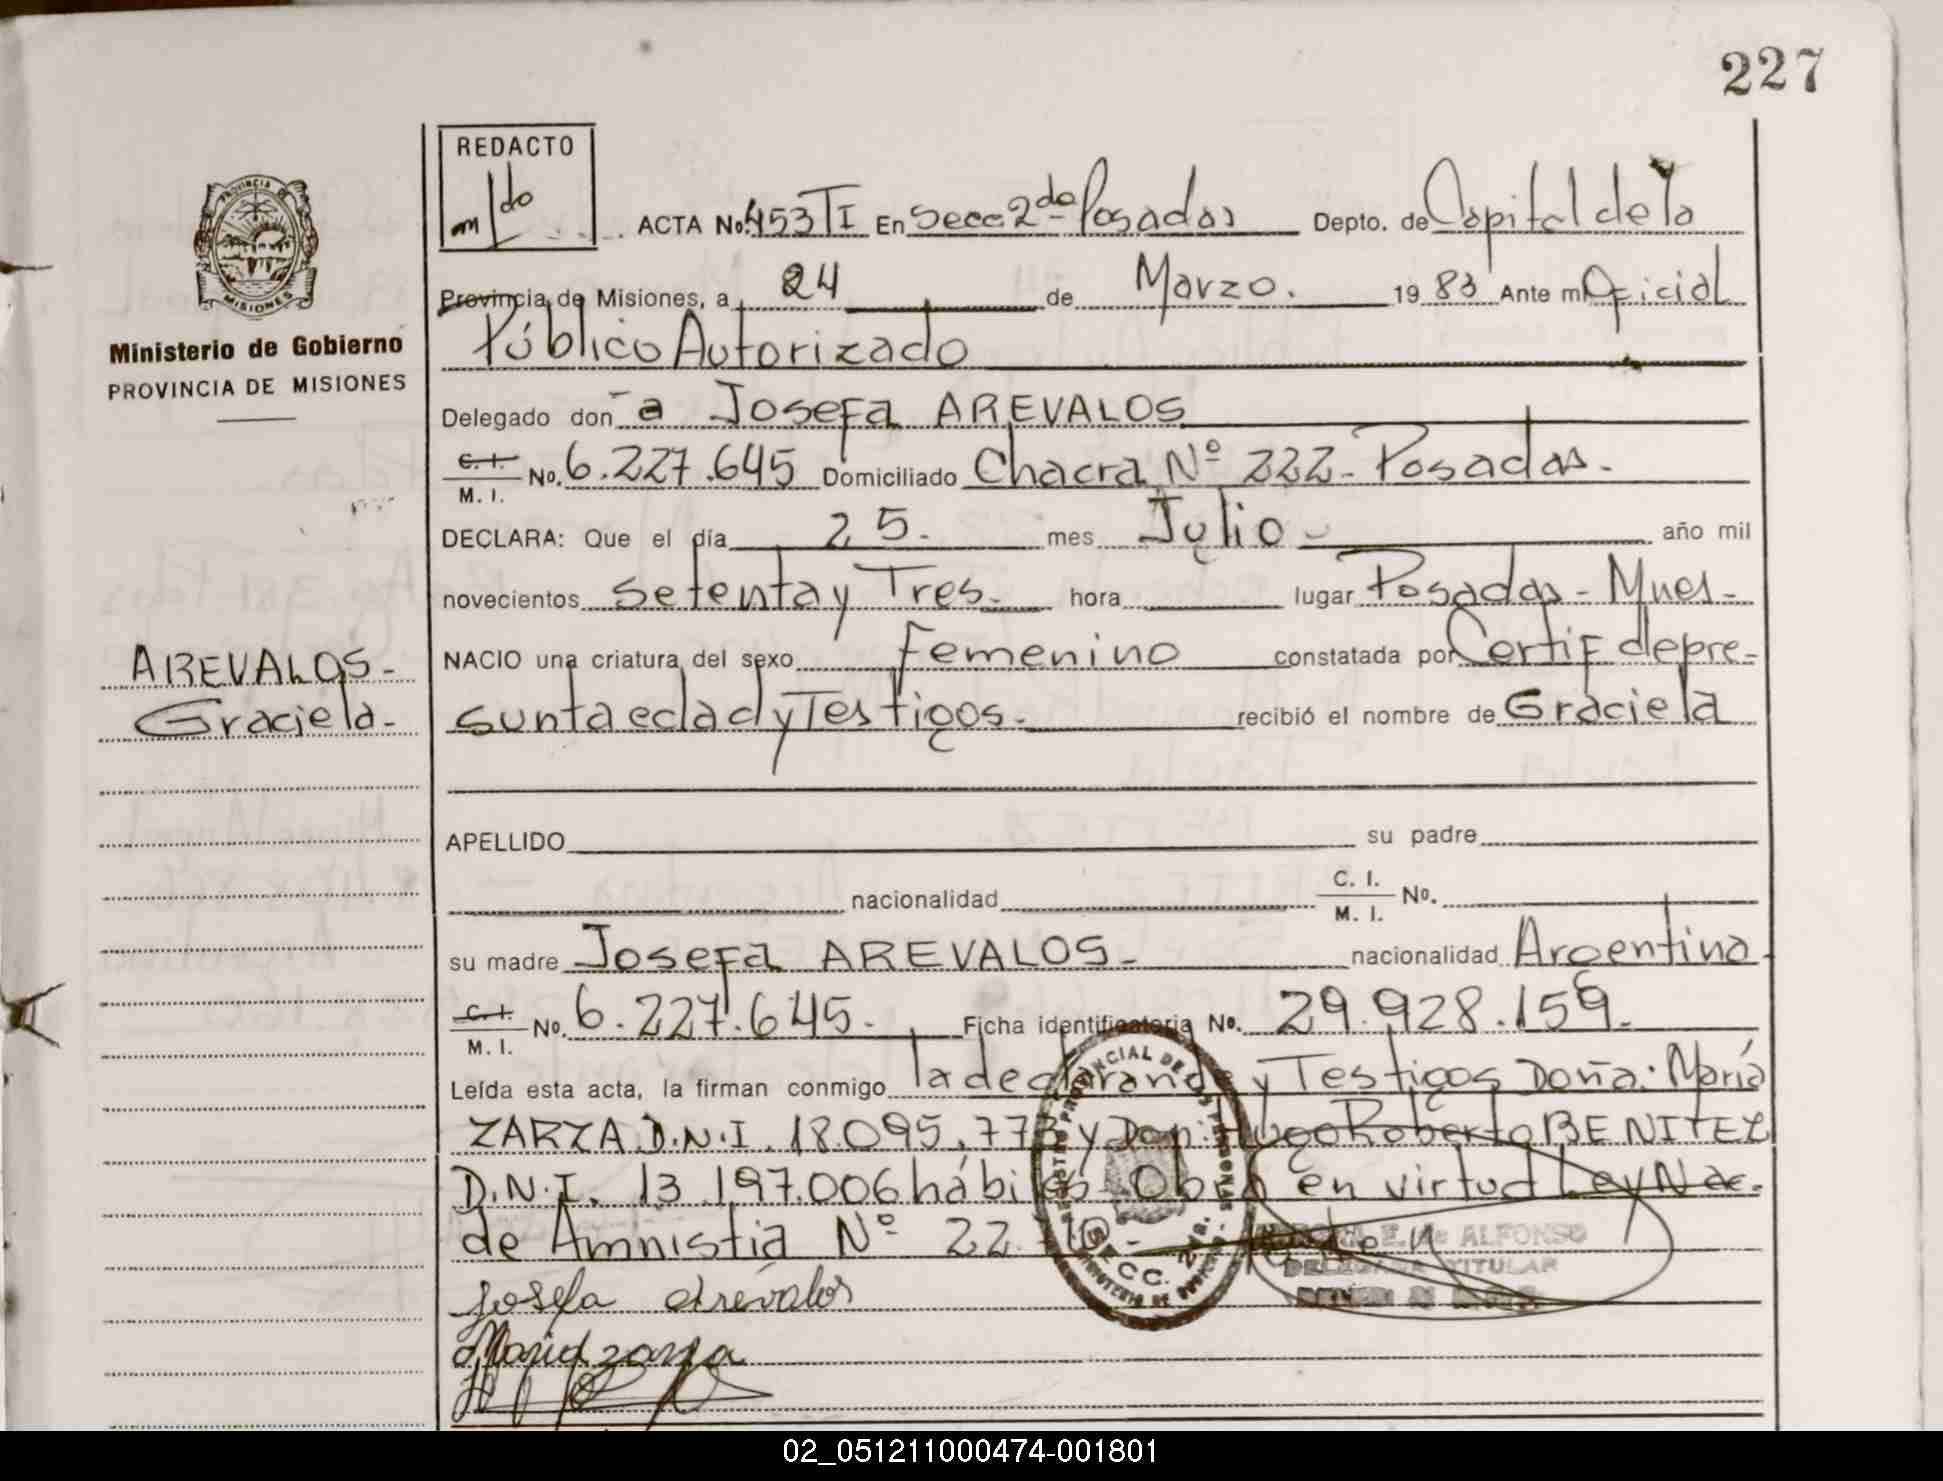 227
REDACTO
PROVINCIA DE
MISIONES
ACTA No. 453 TI En Secc. 2da Posadas Depto. de Capital de la
Provincia de Misiones, a 24 de Marzo. 1983 Ante mi Oficial
Ministerio de Gobierno
PROVINCIA DE MISIONES
Público Autorizado
Delegado don a Josefa AREVALOS
C. I. M. I. No. 6.227.645 Domiciliado Chacra Nº 222 - Posadas.
DECLARA: Que el día 25. mes Julio - año mil
novecientos setenta y Tres. hora lugar Posadas - Mnes -
AREVALOS -
Graciela -
NACIO una criatura del sexo Femenino constatada por Certif de pre-
sunta edad y Testigos. recibió el nombre de Graciela
APELLIDO su padre
nacionalidad C. I. M. I. No.
su madre Josefa AREVALOS - nacionalidad Argentina -
C. I. M. I. No. 6.227.645. Ficha identificatoria No. 29.928.159.
Leída esta acta, la firman conmigo la declarante y Testigos Doña: María
ZARZA D.N.I. 18.095.773 y Don: Hugo Roberto BENITEZ
D.N.I. 13.197.006 hábiles Obra en virtud Ley Nac.
de Amnistia Nº 22.
SECC. 2da.
E. de ALFONSO
DELEGADA TITULAR
Josefa Arévalos
Maria zarza
02_051211000474-001801